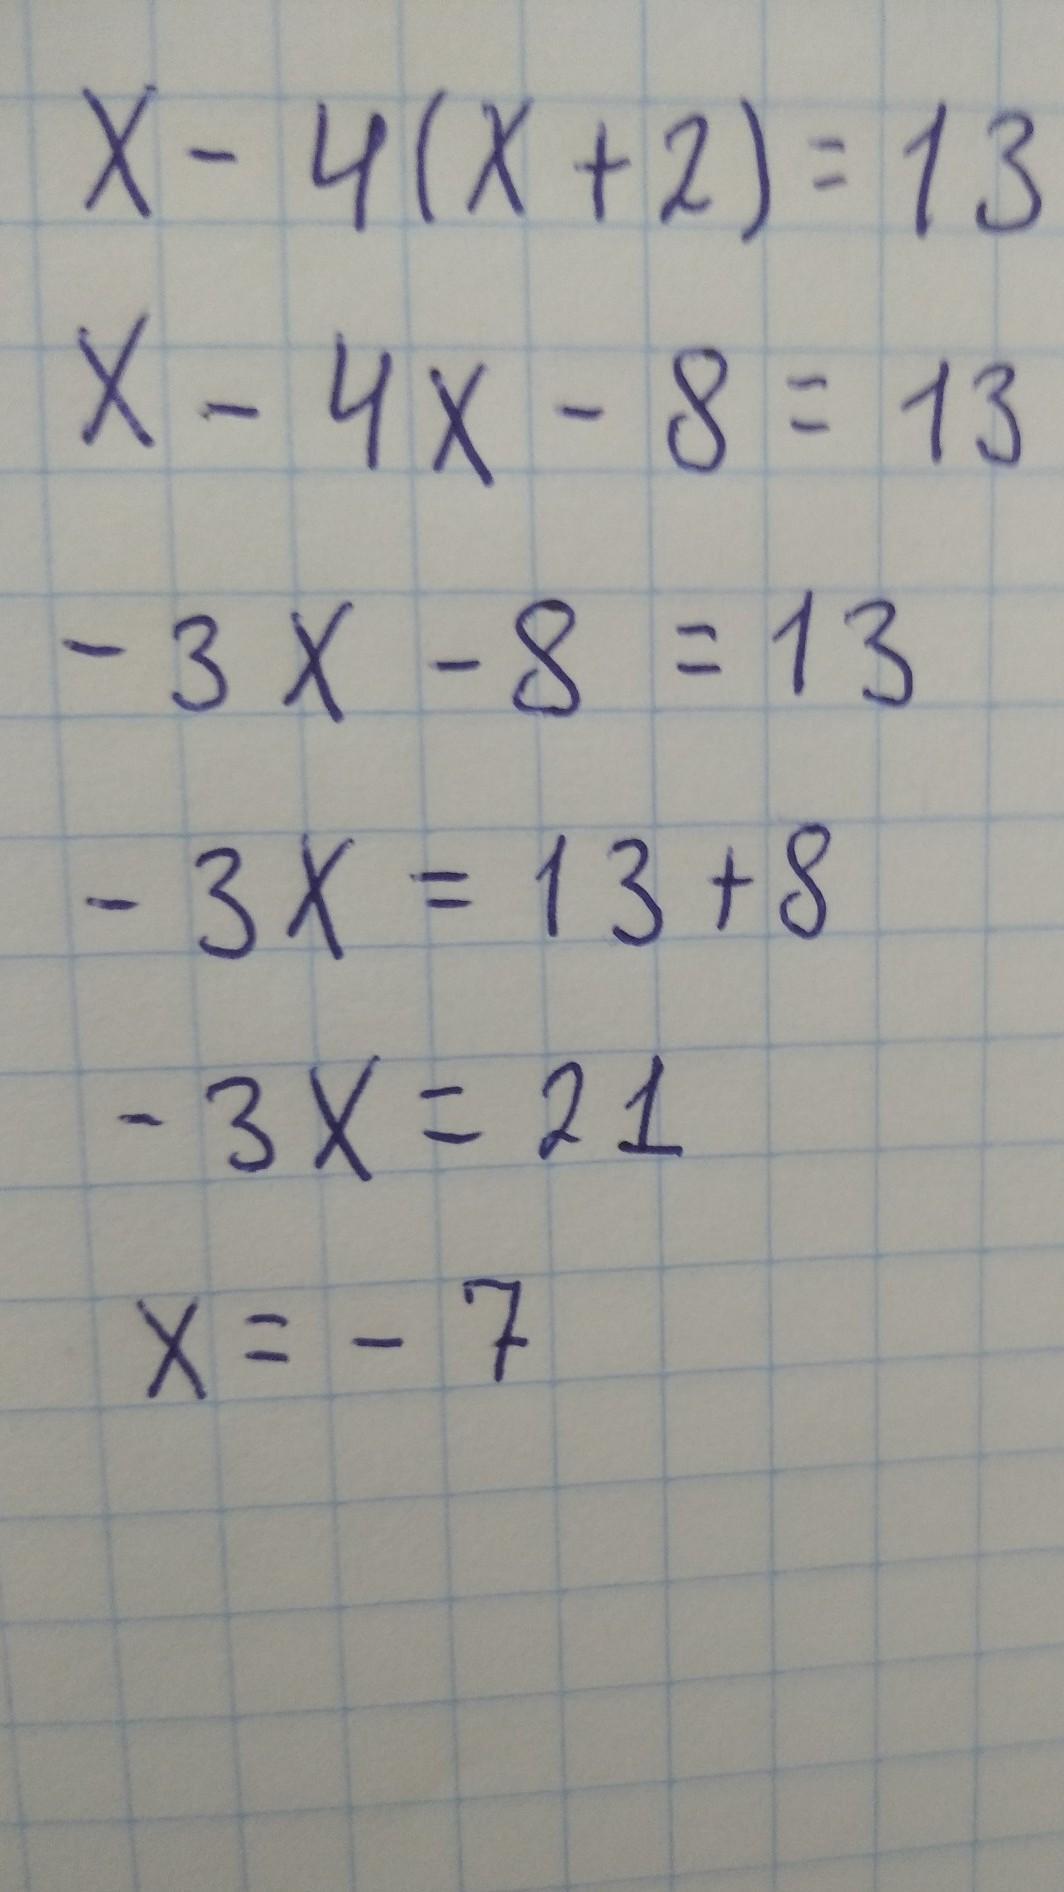 x - 4(x + 2) = 13
x - 4x - 8 = 13
- 3x - 8 = 13
- 3x = 13 + 8
- 3x = 21
x = - 7